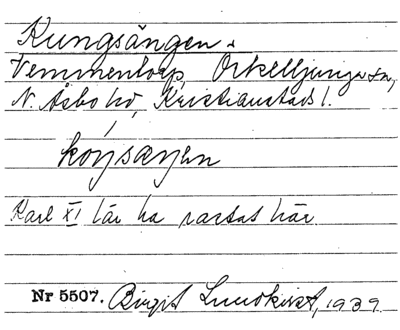 Kungsängen.
Vemmentorp, Örkelljunga sn,
N. Åsbo hd, Kristianstads l.
Karl XI lär ha rastat här
Nr 5507. Birgit Lundkvist, 1939.